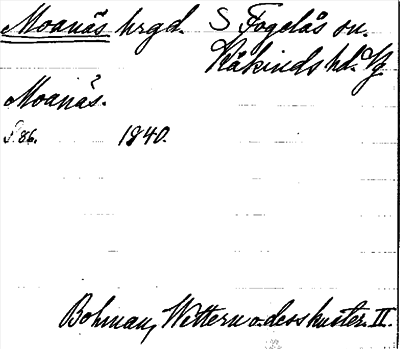 Moanäs hrgd. S Fogelås sn.
Kåkinds hd. Vg
Moanäs.
S. 86. 1840.
Bohman, Wettern o. dess kuster. II.